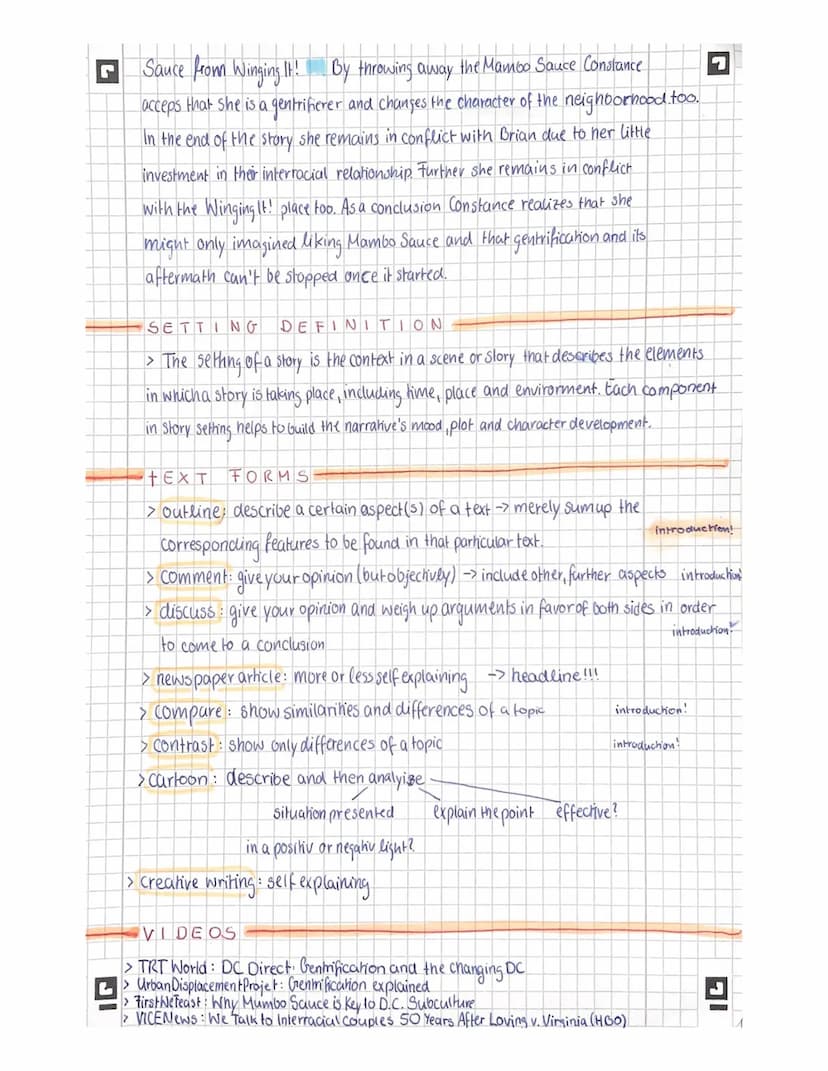 Sauce from Winging It! By throwing away the Mambo Sauce Constance
acceps that she is a gentrifierer and changes the character of the neighborhood too.
In the end of the story she remains in conflict with Brian due to her little
investment in their interracial relationship. Further she remains in conflict
with the Winging It! place too. As a conclusion Constance realizes that she
might only imagined liking Mambo Sauce and that gentrification and its
aftermath can't be stopped once it started.
SETTING DEFINITION
> The setting of a story is the context in a scene or story that describes the elements
in which a story is taking place, including time, place and enviroment. Each component
in story setting helps to build the narrative's mood, plot and character development.
TEXT FORMS
> outline: describe a certain aspect(s) of a text -> merely sum up the
introduction!
corresponding features to be found in that particular text.
> comment: give your opinion (but objectivly) -> include other, further aspects introduction!
> discuss: give your opinion and weigh up arguments in favor of both sides in order
introduction!
to come to a conclusion
> newspaper article: more or less self explaining -> headline!!!
> compare: show similarities and differences of a topic introduction!
> contrast: show only differences of a topic introduction!
> cartoon: describe and then analyise
situation presented explain the point effective?
in a positiv or negativ light?
> creative writing: self explaining
VIDEOS
> TRT World: DC Direct: Gentrification and the changing DC
> Urban Displacement Projet: Gentrification explained
> First We Feast: Why Mumbo Sauce is Key to D.C. Subculture
> VICE News: We Talk to Interracial Couples 50 Years After Loving v. Virginia (HBO)